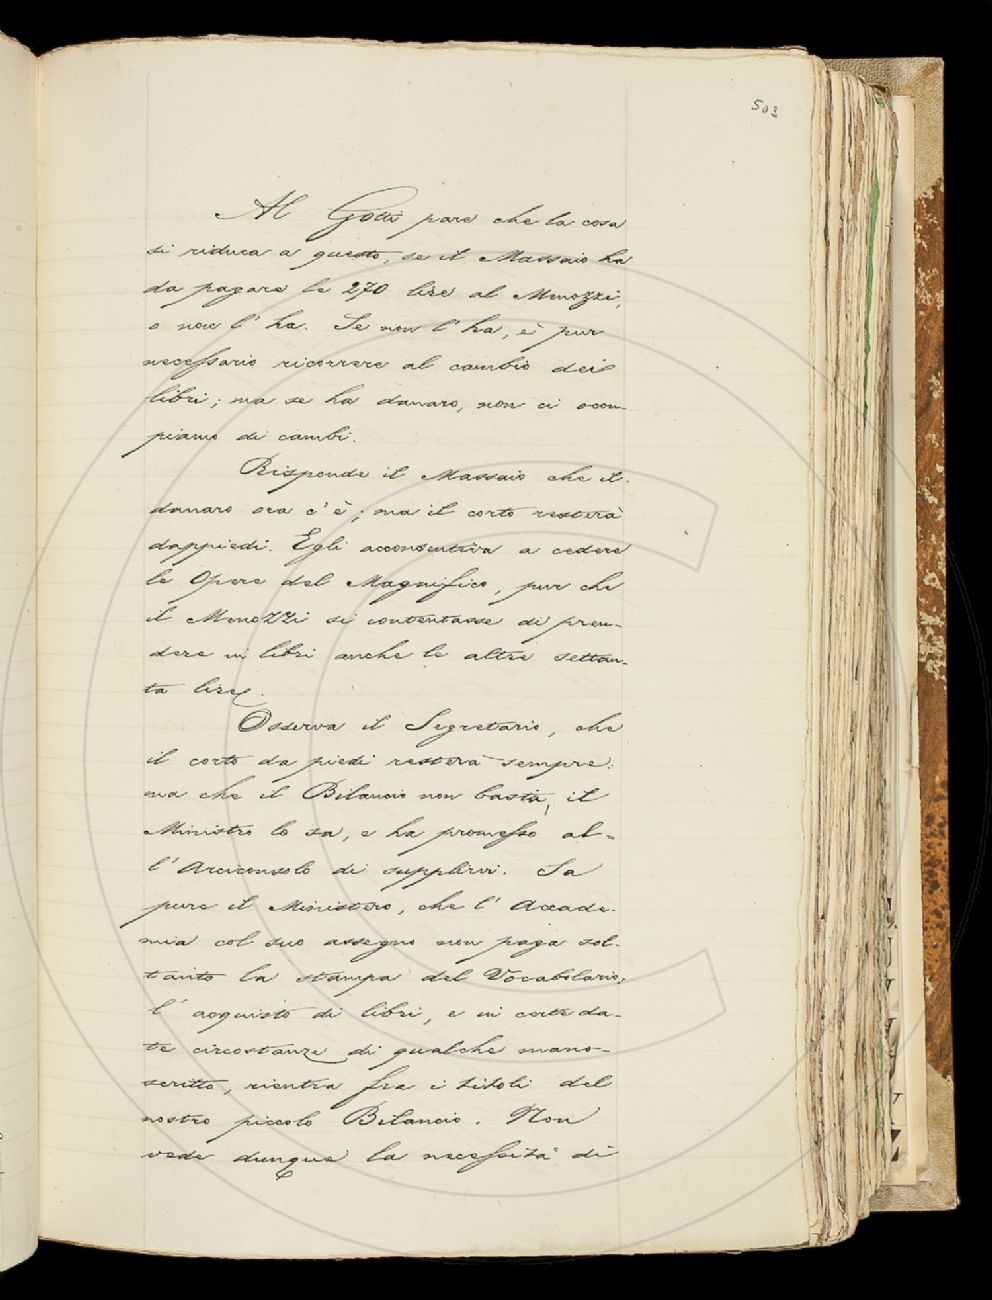 503
Al Gotti pare che la cosa
si riduca a questo, se il Massaio ha
da pagare le 270 lire al Menozzi,
o non l' ha. Se non l' ha, è pur
necessario ricorrere al cambio dei
libri; ma se ha danaro, non ci occu-
piamo di cambi.
Risponde il Massaio che il
danaro ora c' è; ma il corto resterà
dappiedi. Egli acconsentiva a cedere
le Opere del Magnifico, pur che
il Menozzi si contentasse di pren-
dere in libri anche le altre settan-
ta lire.
Osserva il Segretario, che
il corto da piedi resterà sempre:
ma che il Bilancio non basti, il
Ministro lo sa, e ha promesso al-
l' Arciconsolo di supplirvi. Sa
pure il Ministero, che l' Accade-
mia col suo assegno non paga sol-
tanto la stampa del Vocabolario;
l' acquisto di libri, e in certe da-
te circostanze di qualche mano-
scritto, rientra fra i titoli del
nostro piccolo Bilancio. Non
vede dunque la necessità di